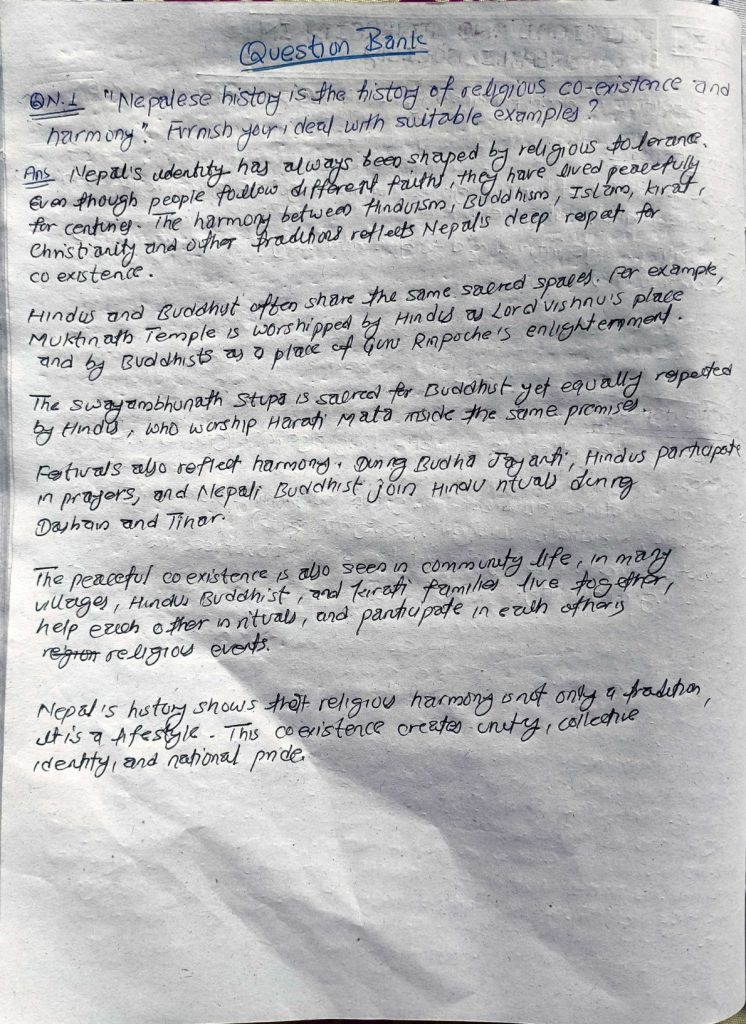 Question Bank
QN.1 "Nepalese history is the history of religious co-existence and
harmony". Furnish your ideal with suitable examples?
Ans Nepal's identity has always been shaped by religious tolerance.
Even though people follow different faiths, they have lived peacefully
for centuries. The harmony between Hinduism, Buddhism, Islam, kirat,
Christianity and other traditions reflects Nepal's deep respect for
co existence.
Hindus and Buddhist often share the same sacred spaces. For example,
Muktinath Temple is worshipped by Hindus as Lord Vishnu's place
and by Buddhists as a place of Guru Rinpoche's enlightenment.
The swayambhunath Stupa is sacred for Buddhist yet equally respected
by Hindus, who worship Harati Mata inside the same premises.
Festivals also reflect harmony. During Budha Jayanti, Hindus participate
in prayers, and Nepali Buddhist join Hindu rituals during
Dashain and Tihar.
The peaceful co existence is also seen in community life, in many
villages, Hindus Buddhist, and kirati families live together,
help each other in rituals, and participate in each other's
religious events.
Nepal's history shows that religious harmony is not only a tradition,
it is a lifestyle. This coexistence creates unity, collective
identity, and national pride.